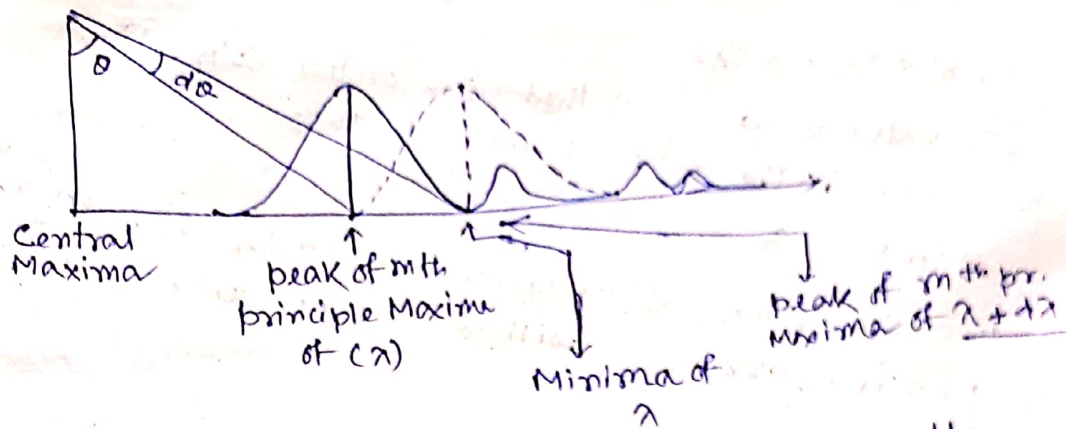 θ
dθ
Central
Maxima
peak of mth
principle Maxima
of (λ)
Minima of
λ
peak of mth pr.
Maxima of λ + dλ